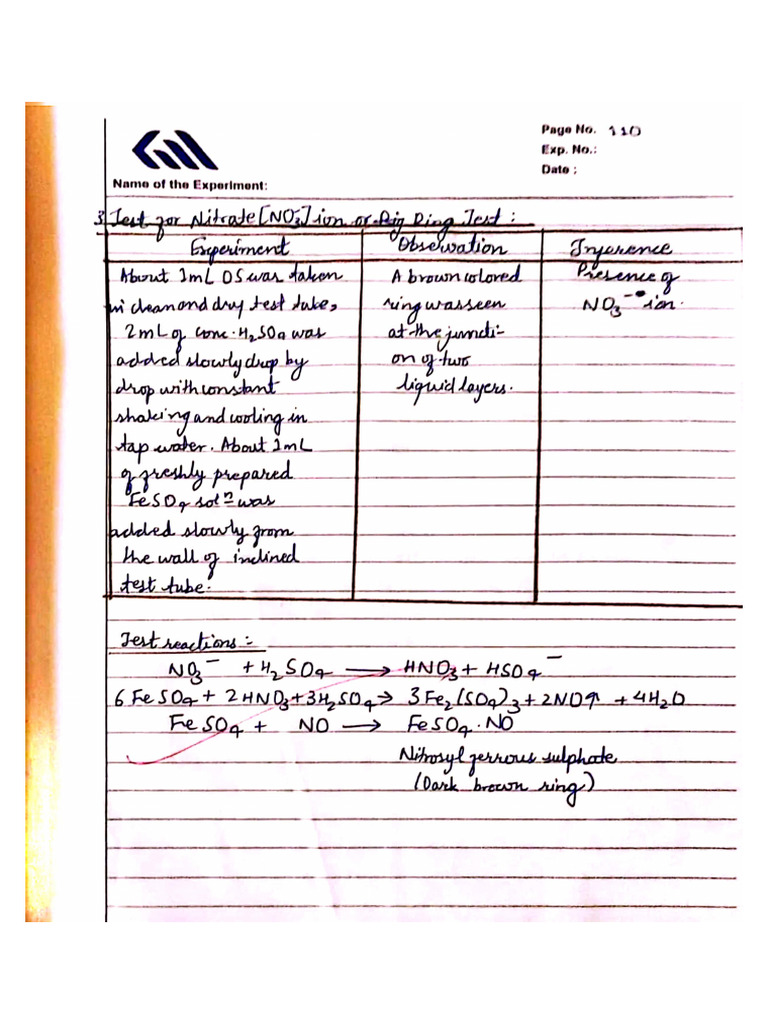 Page No. 110
Exp. No.:
Date :
Name of the Experiment:
3 Test for Nitrate [NO3⁻] ion or Rig Ring Test :
Experiment
About 1mL OS was taken
in clean and dry test tube,
2mL of conc. H2SO4 was
added slowly drop by
drop with constant
shaking and cooling in
tap water. About 1mL
of freshly prepared
FeSO4 solⁿ was
added slowly from
the wall of inclined
test tube.
Observation
A brown colored
ring was seen
at the juncti-
on of two
liquid layers.
Inference
Presence of
NO3⁻ ion.
Test reactions :-
NO3⁻ + H2SO4 → HNO3 + HSO4⁻
6 FeSO4 + 2HNO3 + 3H2SO4 → 3Fe2(SO4)3 + 2NO↑ + 4H2O
FeSO4 + NO → FeSO4.NO
Nitrosyl ferrous sulphate
(Dark brown ring)